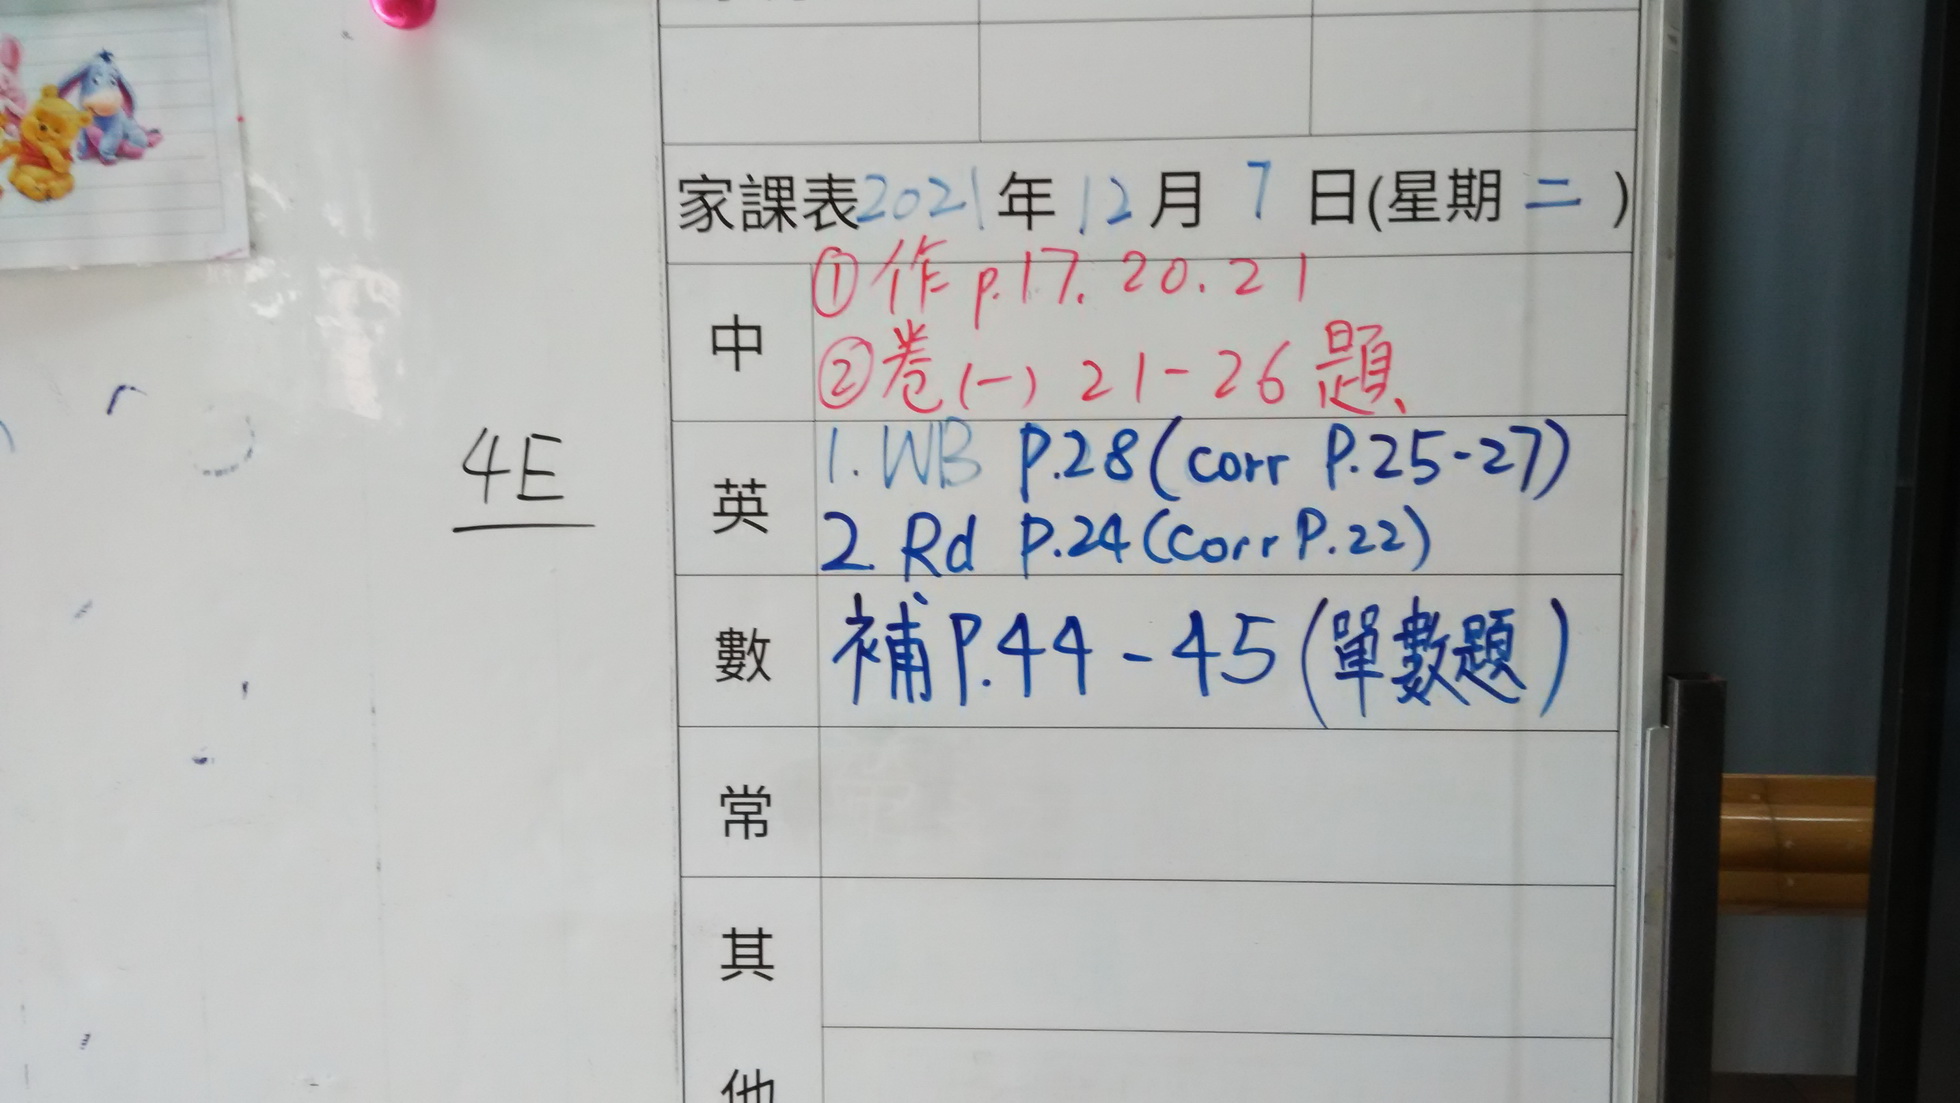 家課表2021年12月7日(星期二)
中
①作p.17.20.21
②卷(一)21-26題
4E
英
1.WB P.28(corr P.25-27)
2 Rd P.24(corr P.22)
數
補P.44-45(單數題)
常
其
他